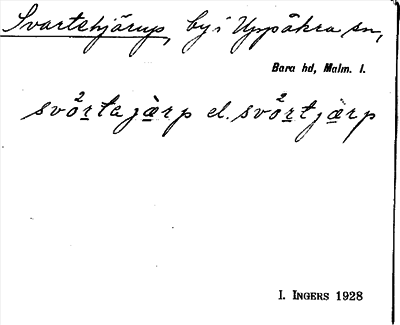 Svartehjärup, by i Uppåkra sn,
Bara hd, Malm. l.
svǻrtajärp el. svǻrtjärp
I. INGERS 1928